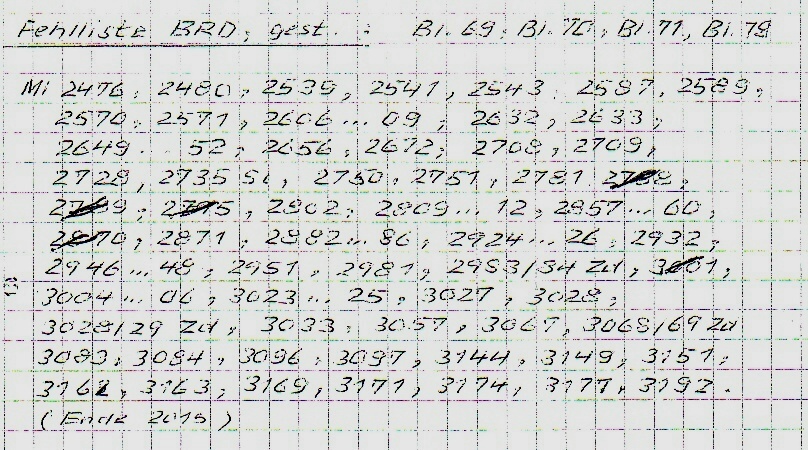 Fehlliste BRD, gest. : Bl. 69, Bl. 70, Bl. 71, Bl. 78
Mi 2476, 2480, 2539, 2541, 2543, 2587, 2589,
2570, 2571, 2606 ... 09, 2632, 2633,
2649 .. 52, 2656, 2672, 2708, 2709,
2728, 2735 SL, 2750, 2751, 2781
2802, 2809 ... 12, 2857 ... 60,
2871, 2882 ... 86, 2924 ... 26, 2932,
2946 ... 48, 2951, 2981, 2953/54 Zd,
3004 ... 06, 3023 ... 25, 3027, 3028,
3028/29 Zd, 3033, 3057, 3067, 3068/69 Zd
3083, 3084, 3096, 3097, 3144, 3149, 3151,
3162, 3163, 3169, 3171, 3174, 3177, 3192.
(Ende 2015)